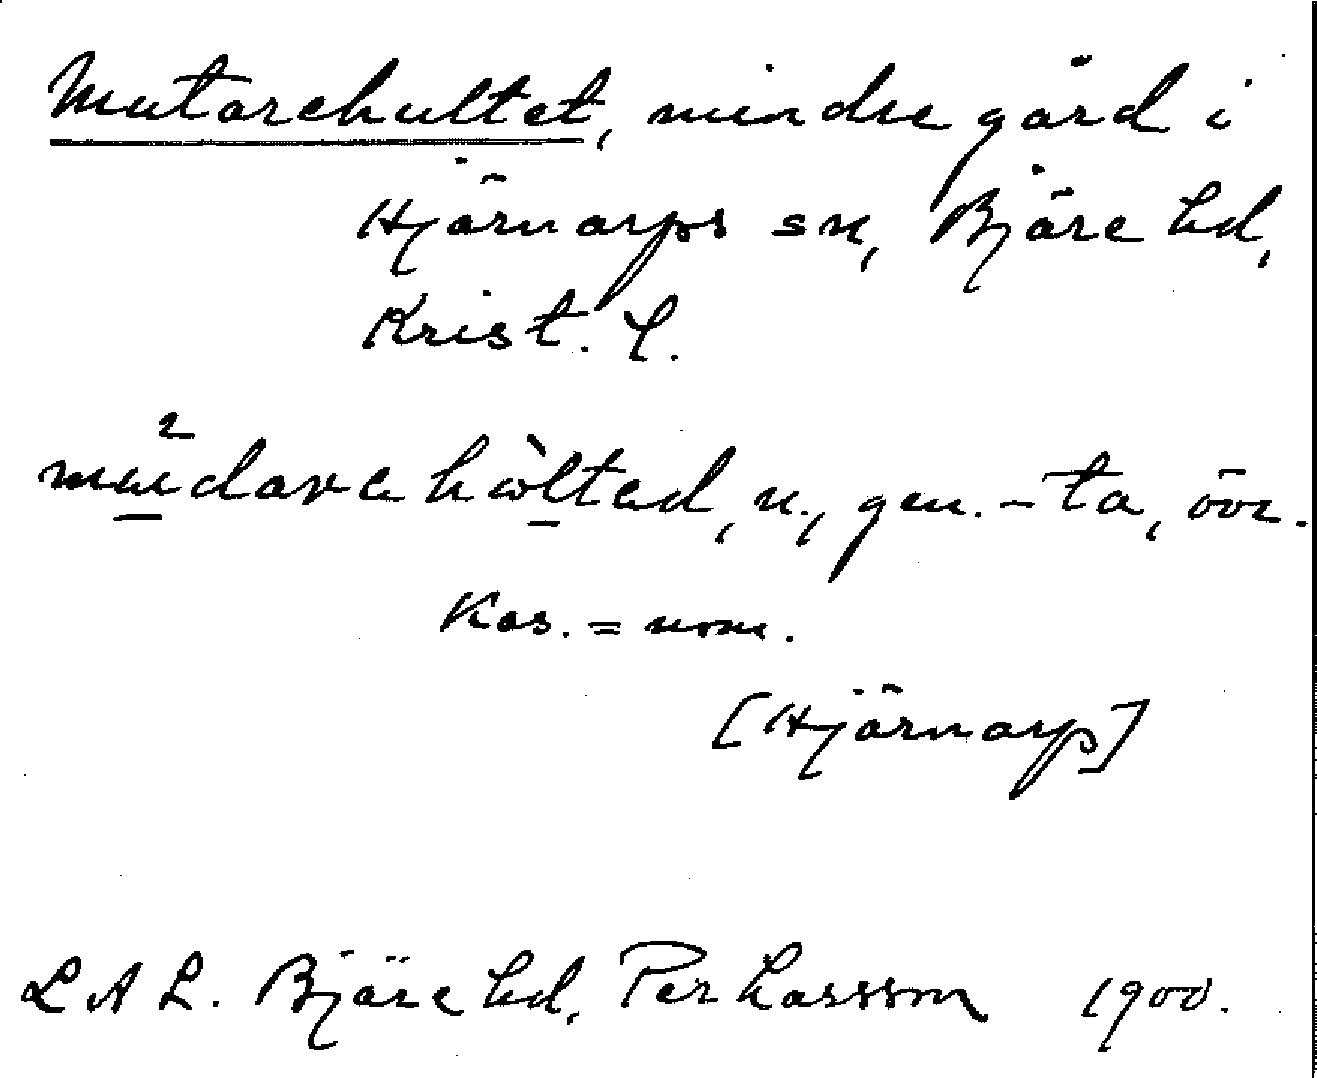 Mutarehultet, mindre gård i
Hjärnarps sn, Bjäre hd,
Krist. L.
n., gen. -ta, övr.
Kas. = nom.
[Hjärnarp]
L A L. Bjäre hd, Per Larsson 1900.